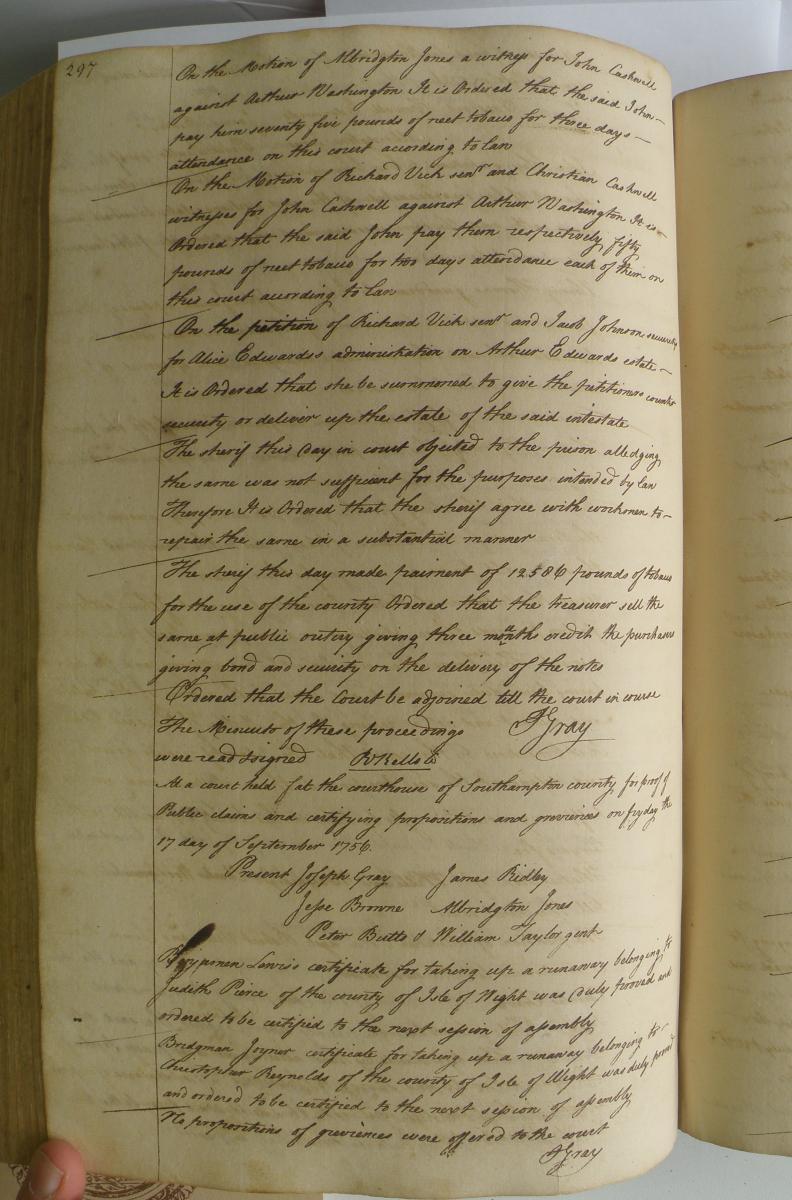 297
On the Motion of Albridgton Jones a witness for John Cashwell
against Arthur Washington It is Ordered that the said John
pay him seventy five pounds of neet tobaco for three days
attendance on this court acording to law
On the Motion of Richard Vick senr and Christian Cashwell
witnesses for John Cashwell against Arthur Washington It is
Ordered that the said John pay them respectively fifty
pounds of neet tobaco for two days attendance each of them on
this court acording to law
On the petition of Richard Vick senr and Jacob Johnson security
for Alice Edwards's administration on Arthur Edwards estate
It is Ordered that she be summoned to give the petitioners counter
security or deliver up the estate of the said intestate
The sherif this day in court objected to the prison alledging
the same was not sufficient for the purposes intended by law
Therefore It is Ordered that the sherif agree with workmen to
repair the same in a substantial manner
The sherif this day made paiment of 12586 pounds of tobaco
for the use of the county Ordered that the treasurer sell the
same at public outcry giving three months credit the purchasers
giving bond and security on the delivery of the notes
Ordered that the Court be adjoined till the court in course
The Minuits of these proceedings JGray
were read & signed
At a court held at the courthouse of Southampton county for proof of
Public claims and certifying propositions and greviences on fryday the
17 day of September 1756.
Present Joseph Gray James Ridley
Jesse Browne Albridgton Jones
Peter Butts & William Taylor gent
Lewis's certificate for taking up a runaway belonging to
Judith Pierce of the county of Isle of Wight was duly proved and
ordered to be certified to the next session of assembly
Bridgman Joyner certificate for taking up a runaway belonging to
Christopher Reynolds of the county of Isle of Wight was duly proved
and ordered to be certified to the next session of assembly
No propositions of greviences were offered to the court
JGray